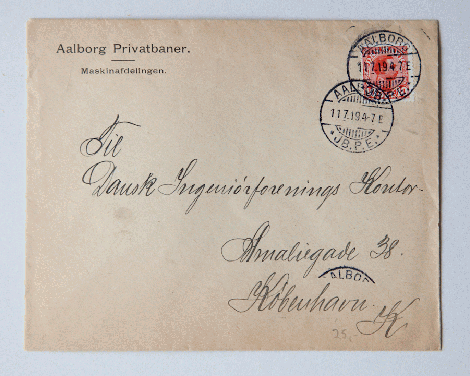 Aalborg Privatbaner.
Maskinafdelingen.
AALBORG
11.7.19 4-7 E
AALBORG
11.7.19 4-7 E
* JB.P.E. *
Til
Dansk Ingeniörforenings Kontor.
Amaliegade 38.
AALBORG
København.
K
25,-